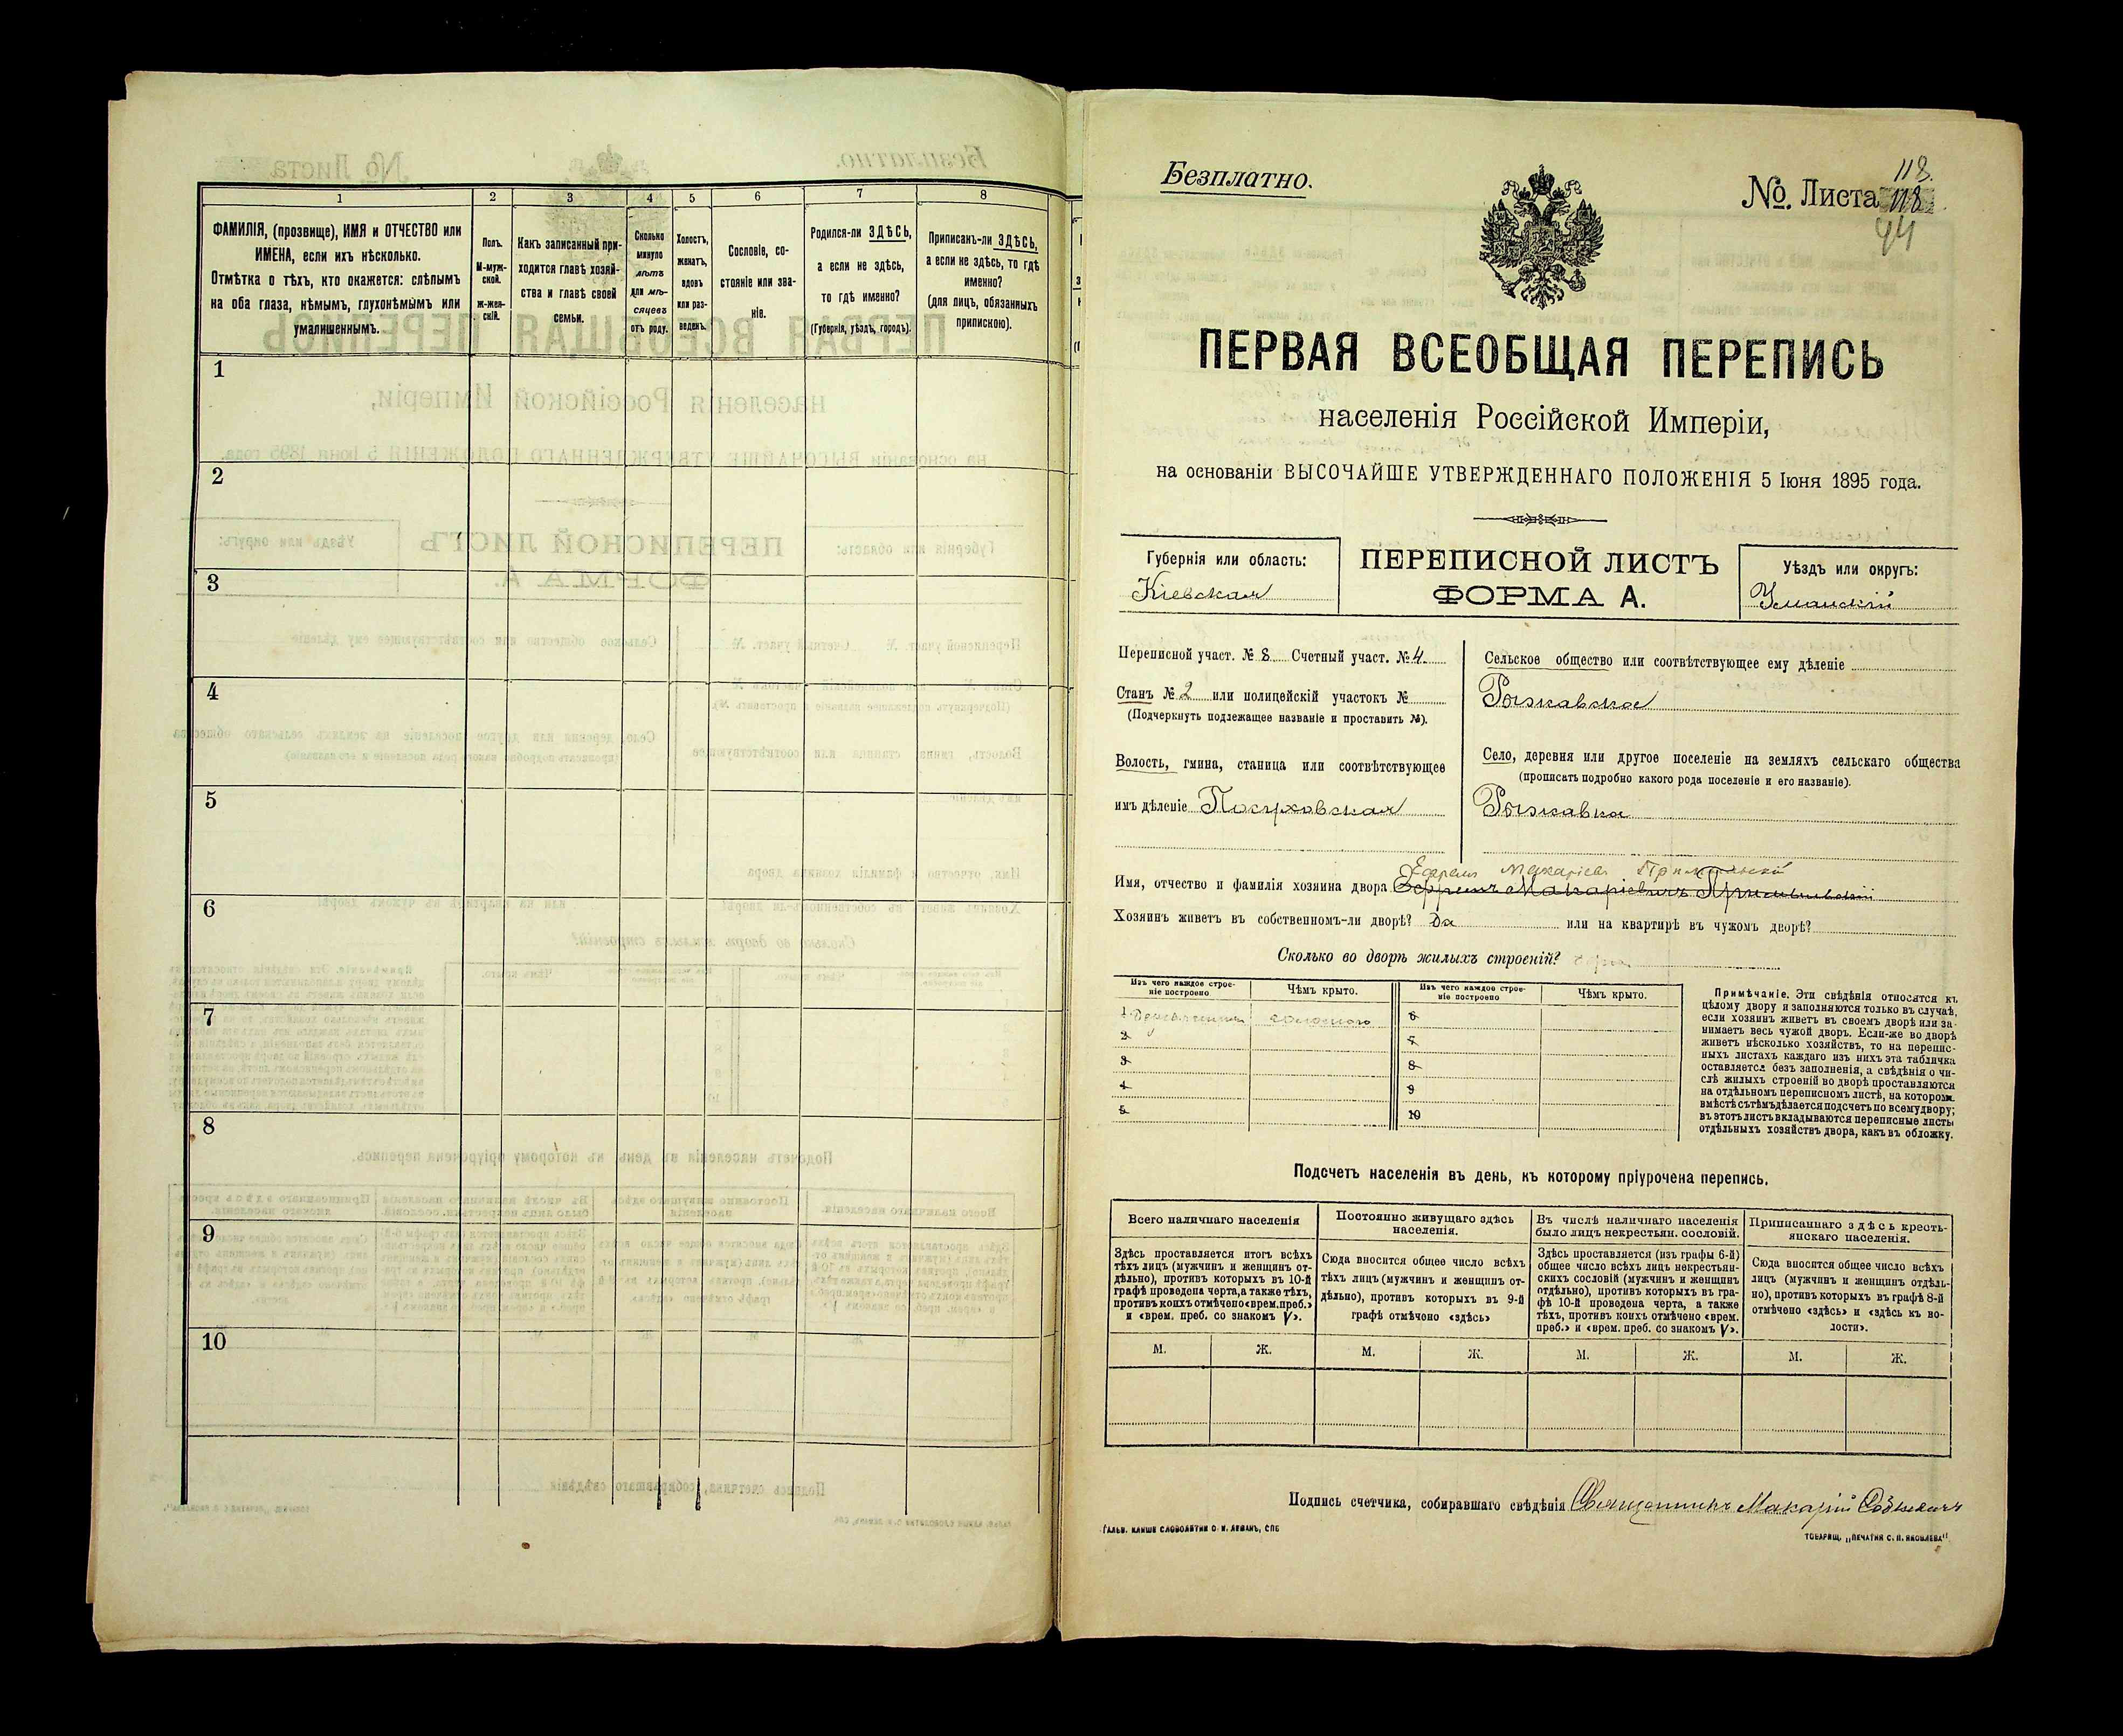 1
2
3
4
5
6
7
8
ФАМИЛІЯ, (прозвище), ИМЯ и ОТЧЕСТВО или
ИМЕНА, если ихъ нѣсколько.
Отмѣтка о тѣхъ, кто окажется: слѣпымъ
на оба глаза, нѣмымъ, глухонѣмымъ или
умалишеннымъ.
Полъ.
М-муж-
ской.
ж-жен-
скій.
Какъ записанный при-
ходится главѣ хозяй-
ства и главѣ своей
семьи.
Сколько
минуло
лѣтъ
или мѣ-
сяцевъ
отъ роду.
Холостъ,
женатъ,
вдовъ
или раз-
веденъ.
Сословіе, со-
стояніе или зва-
ніе.
Родился-ли ЗДѢСЬ,
а если не здѣсь,
то гдѣ именно?
(Губернія, уѣздъ, городъ).
Приписанъ-ли ЗДѢСЬ,
а если не здѣсь, то гдѣ
именно?
(для лицъ, обязанныхъ
припискою).
1
2
3
4
5
6
7
8
9
10
Безплатно.
118.
№. Листа 118
44
ПЕРВАЯ ВСЕОБЩАЯ ПЕРЕПИСЬ
населенія Россійской Имперіи,
на основаніи ВЫСОЧАЙШЕ УТВЕРЖДЕННАГО ПОЛОЖЕНІЯ 5 Іюня 1895 года.
Губернія или область:
Кіевская
ПЕРЕПИСНОЙ ЛИСТЪ
ФОРМА А.
Уѣздъ или округъ:
Уманскій
Переписной участ. № 8 Счетный участ. № 4
Станъ № 2 или полицейскій участокъ №
(Подчеркнуть подлежащее названіе и проставить №).
Волость, гмина, станица или соотвѣтствующее
имъ дѣленіе Посуховская
Сельское общество или соотвѣтствующее ему дѣленіе
Рыжавское
Село, деревня или другое поселеніе на земляхъ сельскаго общества
(прописать подробно какого рода поселеніе и его названіе).
Рыжавка
Ефремъ Макаріевъ
Имя, отчество и фамилія хозяина двора Ефремъ Макаріевичъ
Хозяинъ живетъ въ собственномъ-ли дворѣ? Да или на квартирѣ въ чужомъ дворѣ?
Сколько во дворѣ жилыхъ строеній?
Изъ чего каждое строе-
ніе построено
Чѣмъ крыто.
Изъ чего каждое строе-
ніе построено
Чѣмъ крыто.
1 соломою
2
3
4
5
6
7
8
9
10
Примѣчаніе. Эти свѣдѣнія относятся къ
цѣлому двору и заполняются только въ случаѣ,
если хозяинъ живетъ въ своемъ дворѣ или за-
нимаетъ весь чужой дворъ. Если-же во дворѣ
живетъ нѣсколько хозяйствъ, то на перепис-
ныхъ листахъ каждаго изъ нихъ эта табличка
оставляется безъ заполненія, а свѣдѣнія о чи-
слѣ жилыхъ строеній во дворѣ проставляются
на отдѣльномъ переписномъ листѣ, на которомъ
вмѣстѣ съ тѣмъ дѣлается подсчетъ по всему двору;
въ этотъ листъ вкладываются переписные листы
отдѣльныхъ хозяйствъ двора, какъ въ обложку.
Подсчетъ населенія въ день, къ которому пріурочена перепись.
Всего наличнаго населенія
Здѣсь проставляется итогъ всѣхъ
тѣхъ лицъ (мужчинъ и женщинъ от-
дѣльно), противъ которыхъ въ 10-й
графѣ проведена черта, а также тѣхъ,
противъ коихъ отмѣчено «врем. преб.»
и «врем. преб. со знакомъ V».
Постоянно живущаго здѣсь
населенія.
Сюда вносится общее число всѣхъ
тѣхъ лицъ (мужчинъ и женщинъ от-
дѣльно), противъ которыхъ въ 9-й
графѣ отмѣчено «здѣсь»
Въ числѣ наличнаго населенія
было лицъ некрестьян. сословій.
Здѣсь проставляется (изъ графы 6-й)
общее число всѣхъ лицъ некрестьян-
скихъ сословій (мужчинъ и женщинъ
отдѣльно), противъ которыхъ въ гра-
фѣ 10-й проведена черта, а также
тѣхъ, противъ коихъ отмѣчено «врем.
преб.» и «врем. преб. со знакомъ V».
Приписаннаго здѣсь кресть-
янскаго населенія.
Сюда вносится общее число всѣхъ
лицъ (мужчинъ и женщинъ отдѣль-
но), противъ которыхъ въ графѣ 8-й
отмѣчено «здѣсь» и «здѣсь къ во-
лости».
М. Ж. М. Ж. М. Ж. М. Ж.
Подпись счетчика, собиравшаго свѣдѣнія Священникъ Макарій
ГАЛЬВ. КЛИШЕ СЛОВОЛИТНИ О. И. ЛЕМАНЪ, СПБ
ТОВАРИЩ. „ПЕЧАТНЯ С. П. ЯКОВЛЕВА“